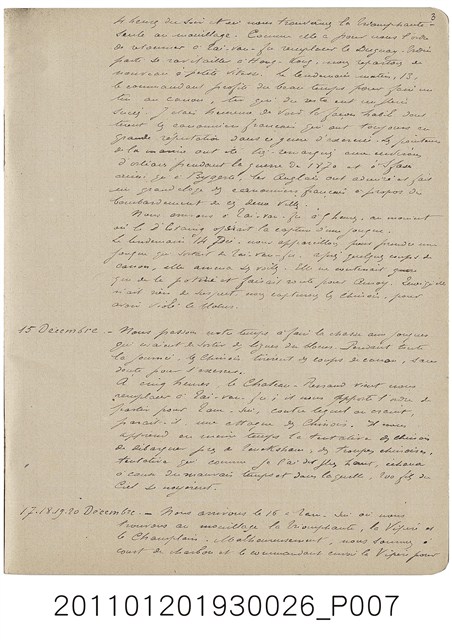 3
4 heures du soir et nous trouvons la Triomphante
seule au mouillage. Comme elle a pour nous l'ordre
de retourner à Taï-wan-fu remplacer le Duguay-Trouin
parti se ravitailler à Hong-Kong, nous repartons de
nouveau à petite vitesse. Le lendemain matin, 13,
le commandant profite du beau temps pour faire un
tir au canon, tir qui du reste eut un plein
succès. J'étais heureux de voir la façon habile dont
tirent les canonniers français qui ont toujours eu
grande réputation dans ce genre d'exercice. Les pointeurs
de la marine ont été très remarqués
pendant la guerre de 1870 et à Sfax
ainsi qu'à Bizerte, les Anglais ont admiré et fait
un grand éloge des canonniers français à propos du
bombardement de ces deux villes.
Nous arrivons à Taï-wan-fu à 9 heures, au moment
où le d'Estaing opérait la capture d'une jonque.
Le lendemain 14 Déc. nous appareillons pour prendre une
jonque qui sortait de Taï-wan-fu. Après quelques coups de
canon, elle amena ses voiles. Elle ne contenait
que de la poterie et faisait route pour Amoy.
n'ait rien de suspect, nous capturons les Chinois pour
avoir violé le blocus.
15 Décembre. - Nous passons notre temps à faire la chasse aux jonques
qui essaient de sortir des lignes du blocus. Pendant toute
la journée, les Chinois tirèrent des coups de canon, sans
doute pour s'exercer.
A cinq heures, le Chateau-Renaud vient nous
remplacer à Taï-wan-fu ; il nous apporte l'ordre de
partir pour Tam-Sui, contre lequel on craint,
paraît-il, une attaque des Chinois. Il nous
apprend en même temps la tentative des chinois
de débarquer près de Takuskam, des troupes chinoises,
tentative qui comme je l'ai dit plus haut, échoua
à cause du mauvais temps et dans laquelle 400 fils du
Ciel se noyèrent.
17.18.19.20 Décembre. - Nous arrivons le 16 à Tam-Sui où nous
trouvons au mouillage la Triomphante, la Vipère et
le Champlain. Malheureusement, nous sommes à
court de charbon et le commandant envoie la Vipère pour
201101201930026_P007